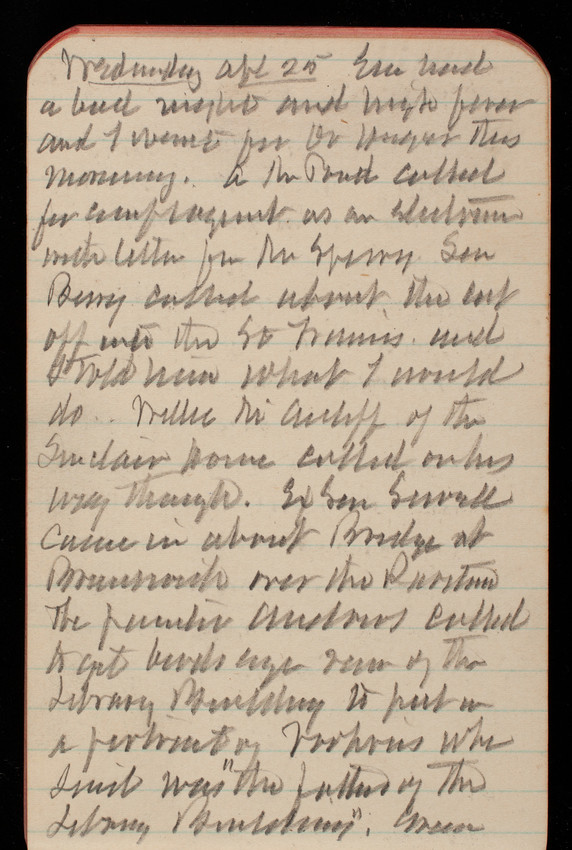 Wednesday Apl 25 Gen had
a bad night and high fever
and I went for Dr this
morning. A Mr called
for as an Electrician
with letter for Mr Sperry Gen
Berry called about the cut
off into the St Francis and
I told him what I would
do. Willie of the
Sinclair house called on his
way through. Ex Gen Sewell
came in about Bridge at
Brunswick over the Raritan
The painter Andrews called
to get birds eye view of the
Library Building to put in
a portrait of Voorhies who
said was "the father of the
Library Building". Green